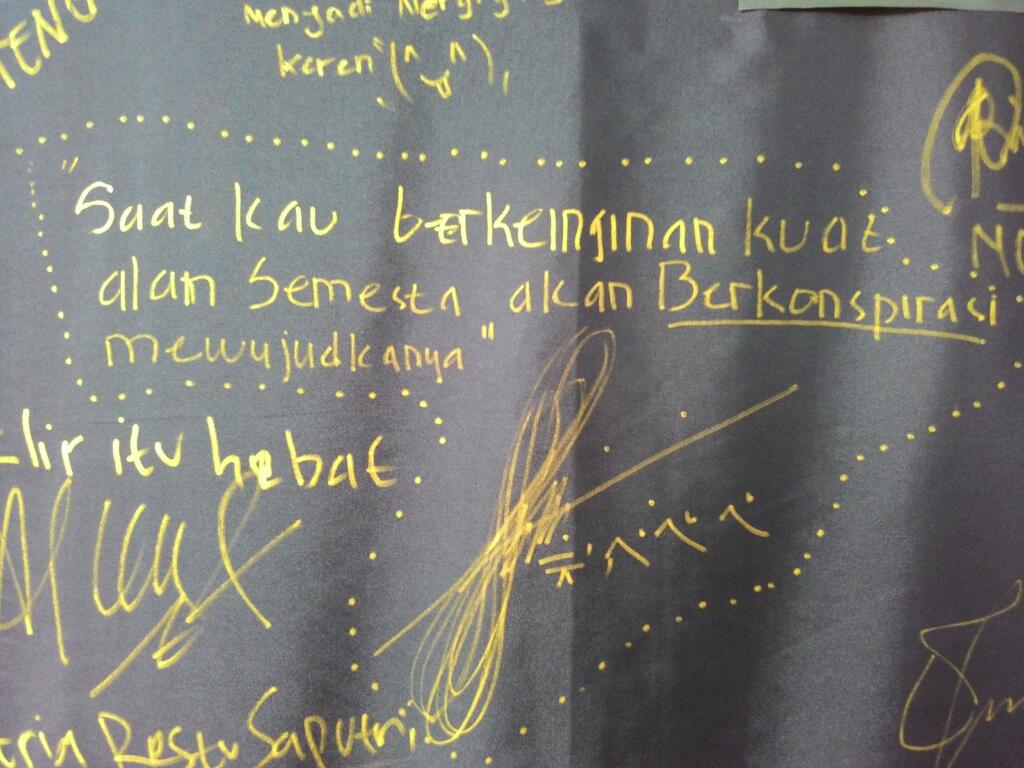 Menjadi
keren (^‿^),
"Saat kau berkeinginan kuat.
alam semesta akan Berkonspirasi
mewujudkanya"
itu hebat.
Restu Saputri